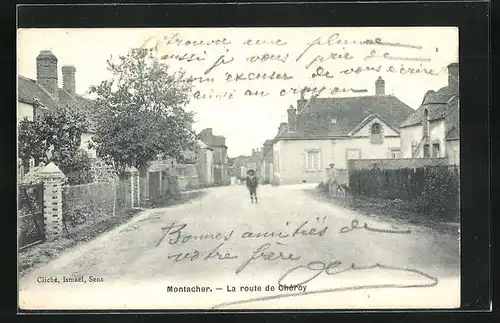 trouver une plume
aussi je vous prie de
m'excuser de vous écrire
ainsi au crayon
Bonnes amitiés de
votre frère
Cliché, Ismaël, Sens
Montacher. - La route de Chéroy